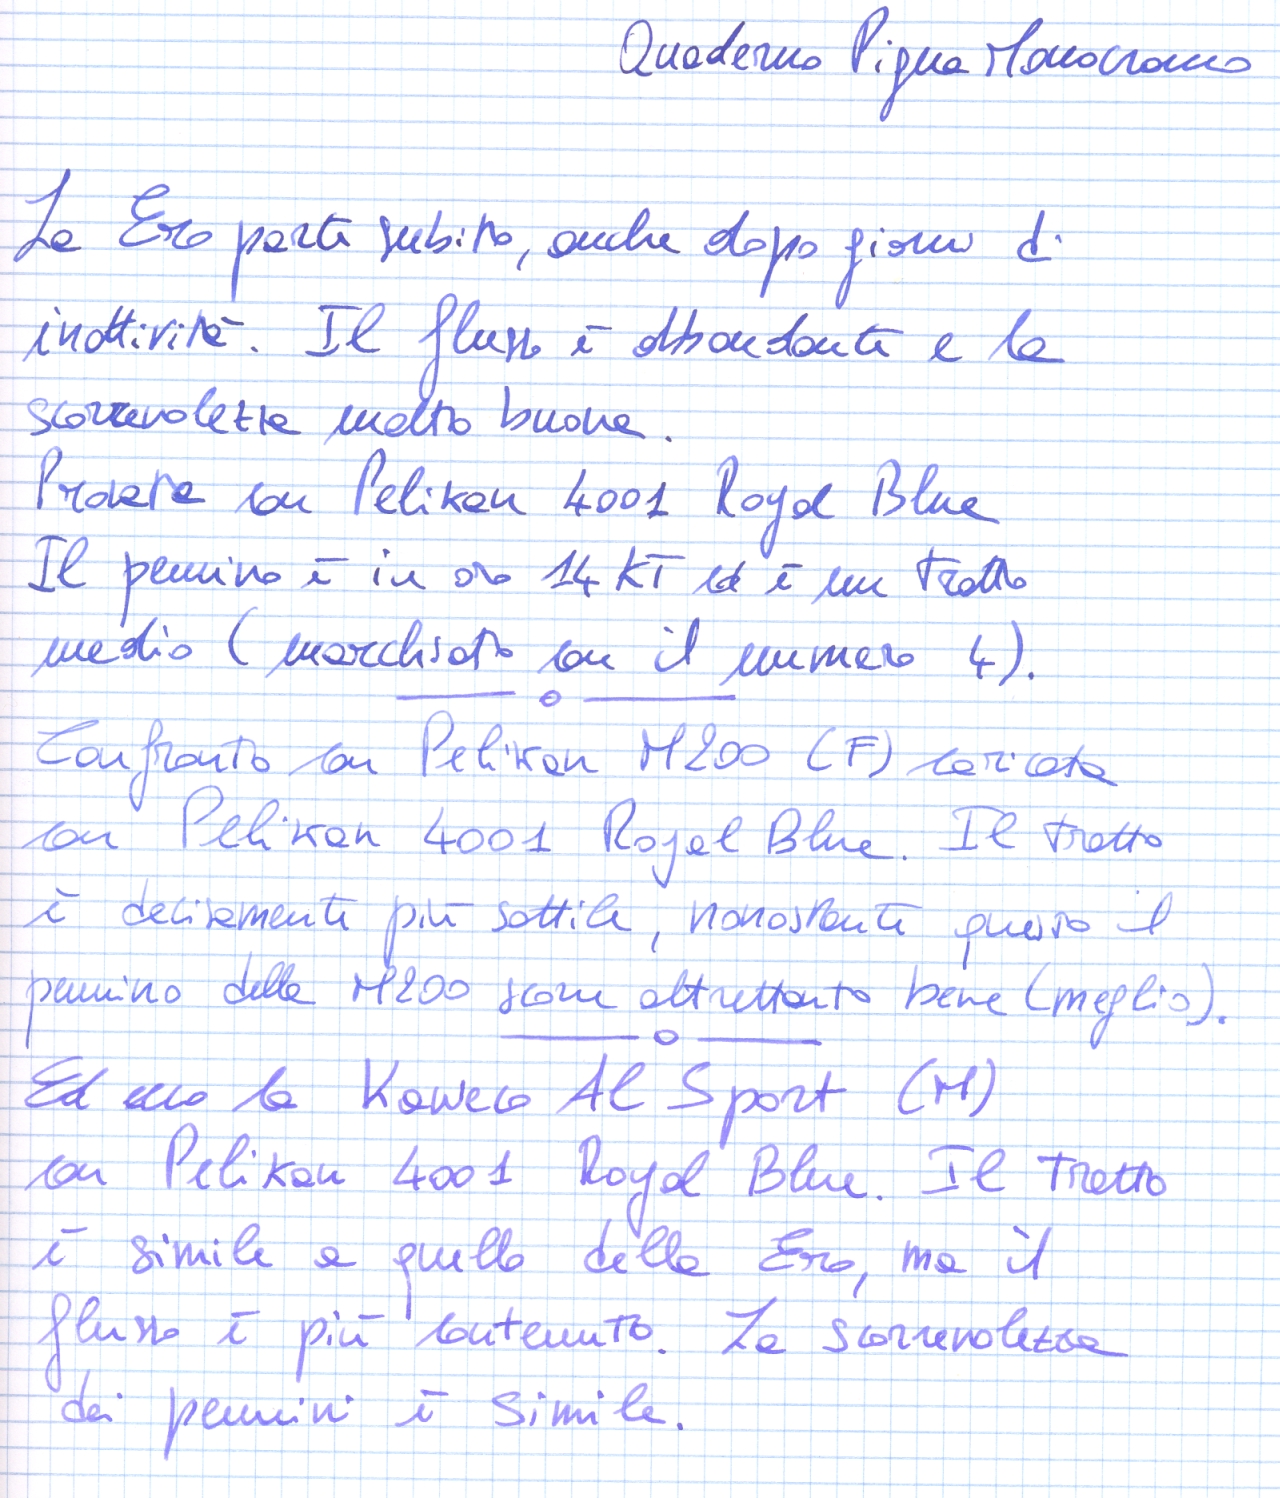 Quaderno Pigna Monocromo
La Ero parte subito, anche dopo giorni di
inattività. Il flusso è abbondante e la
scorrevolezza molto buona.
Provata con Pelikan 4001 Royal Blue
Il pennino è in oro 14 KT ed è un tratto
medio (marchiato con il numero 4).
Confronto con Pelikan M200 (F) caricata
con Pelikan 4001 Royal Blue. Il tratto
è decisamente più sottile, nonostante questo il
pennino della M200 scorre altrettanto bene (meglio).
Ed ecco la Kaweco Al Sport (M)
con Pelikan 4001 Royal Blue. Il tratto
è simile a quello della Ero, ma il
flusso è più contenuto. La scorrevolezza
dei pennini è simile.